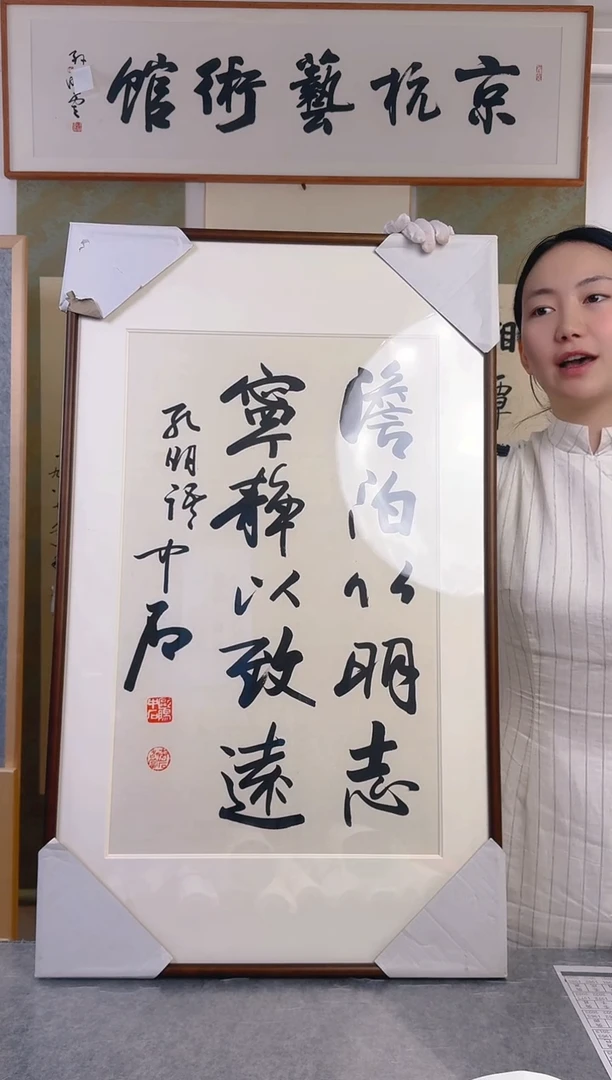 京杭藝術館
澹泊以明志
寧静以致遠
孔明語 中石